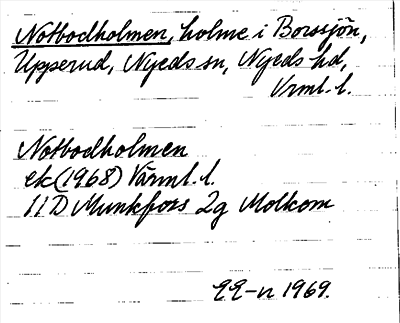 Notbodholmen, holme i Borssjön,
Upperud, Nyeds sn, Nyeds hd,
Vrml. l.
Notbodholmen
ek (1968) Värml. l.
11D Munkfors 2g Molkom
1969.